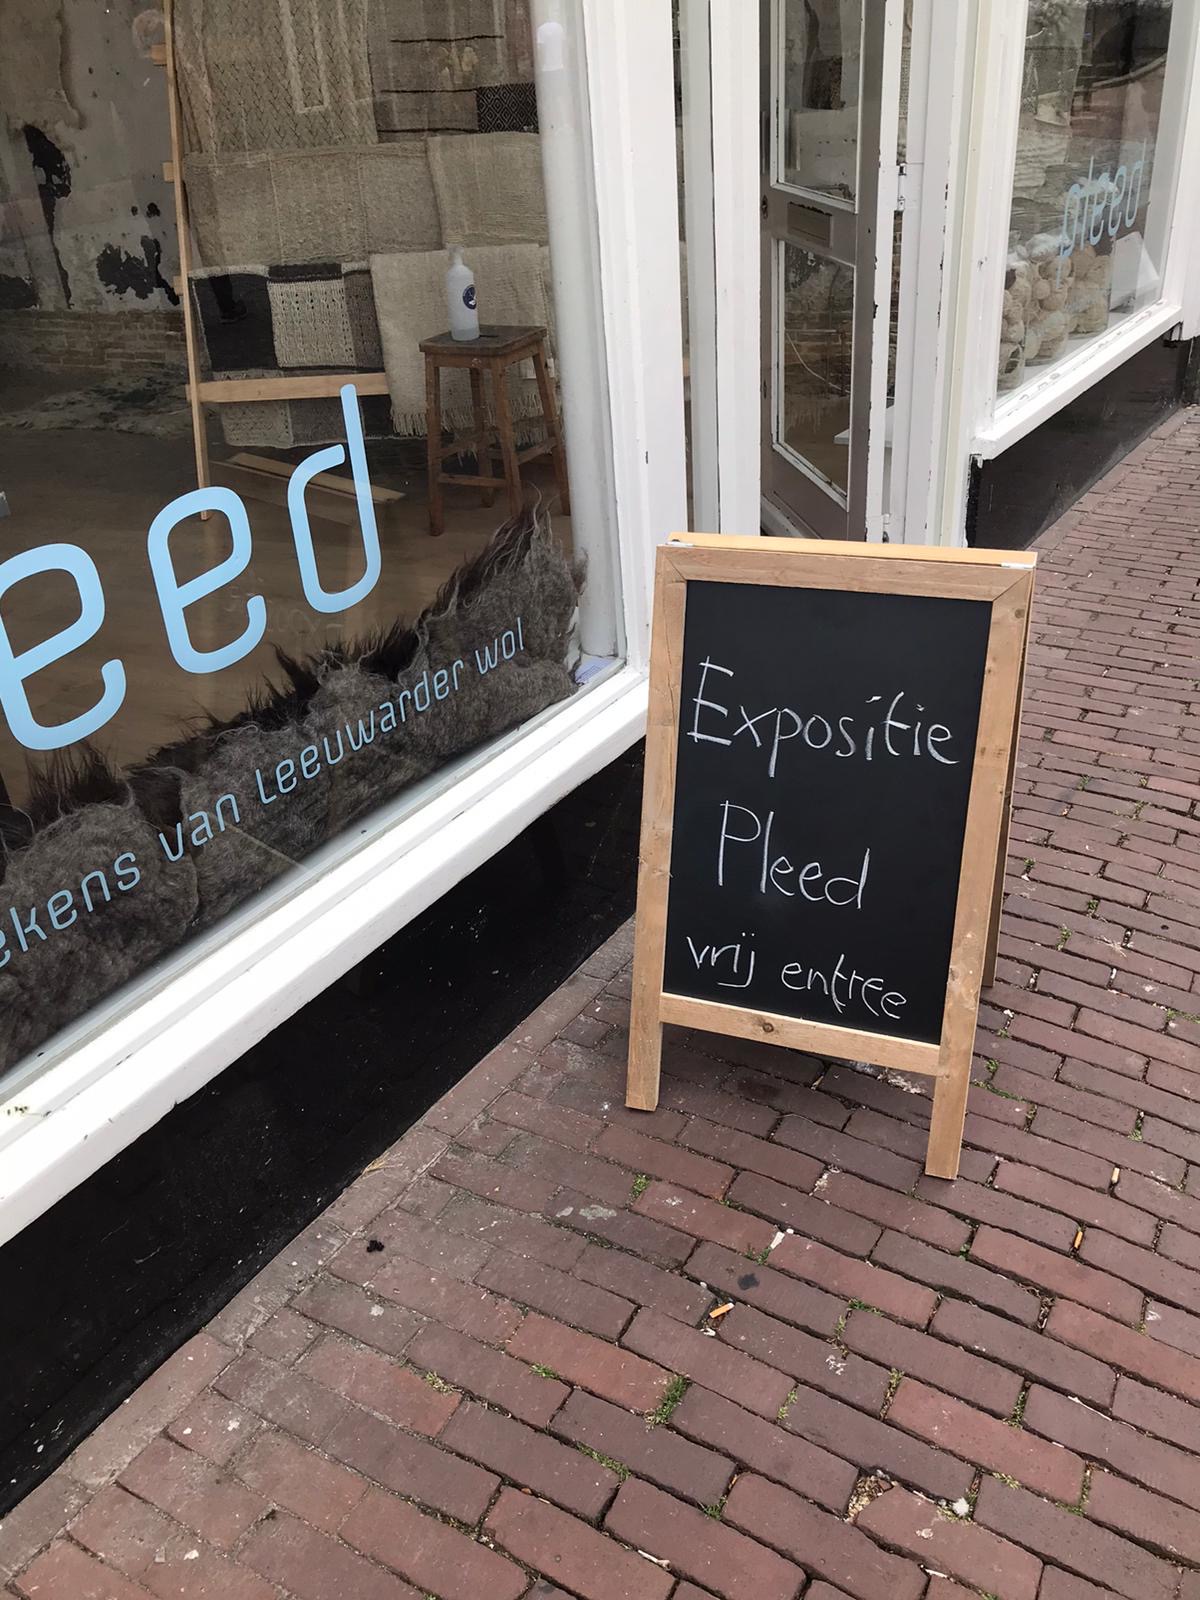 eed
ekens van Leeuwarder wol
Expositie
Pleed
vrij entree
pleed